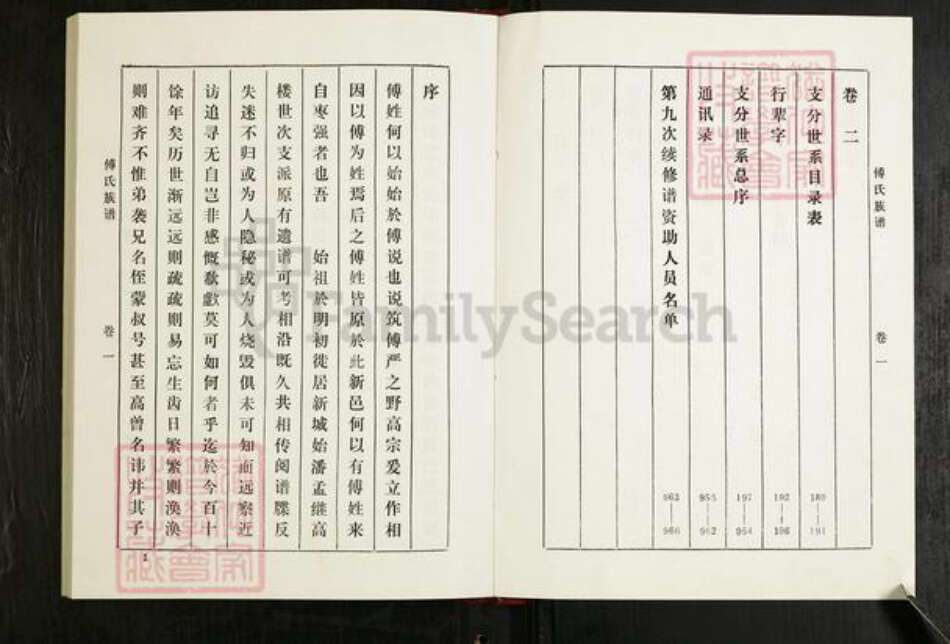 傅氏族谱
卷一
卷二
支分世系目录表
180—191
行辈字
192—196
支分世系总序
197—954
通讯录
955—962
第九次续修谱资助人员名单
963—966
序
傅姓何以始始於傅说也说筑傅严之野高宗爰立作相
因以傅为姓焉后之傅姓皆原於此新邑何以有傅姓来
自枣强者也吾 始祖於明初徙居新城始潘孟继高
楼世次支派原有遗谱可考相沿既久共相传阅谱牒反
失迷不归或为人隐秘或为人烧毁俱未可知而远察近
访追寻无自岂非感慨欷歔莫可如何者乎迄於今百十
馀年矣历世渐远远则疏疏则易忘生齿日繁繁则涣涣
则难齐不惟弟袭兄名侄蒙叔号甚至高曾名讳并其子
傅氏族谱
卷一
1
FamilySearch